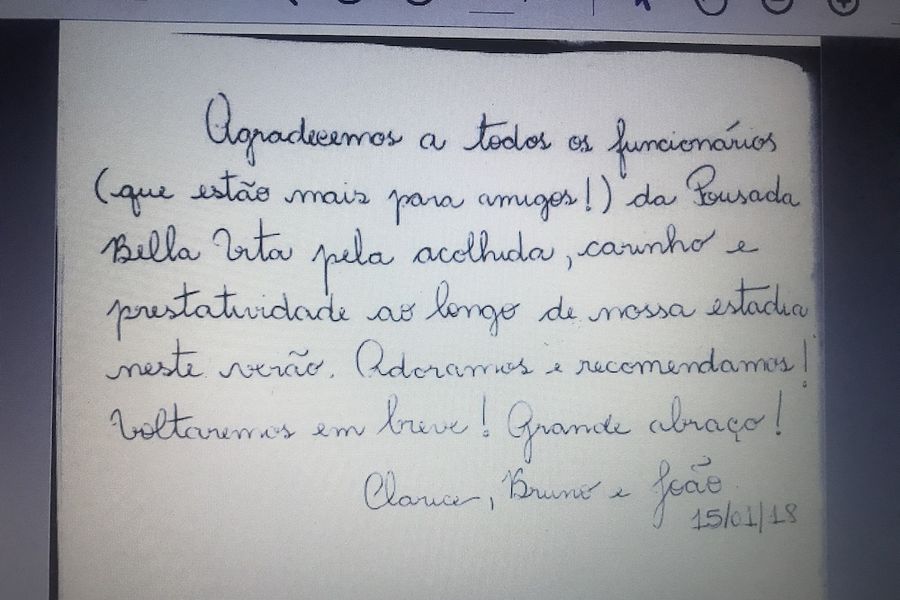 Agradecemos a todos os funcionários
(que estão mais para amigos!) da Pousada
Bella Vita pela acolhida, carinho e
prestatividade ao longo de nossa estadia
neste verão. Adoramos e recomendamos!
Voltaremos em breve! Grande abraço!
Clarice, Bruno e João
15/01/18